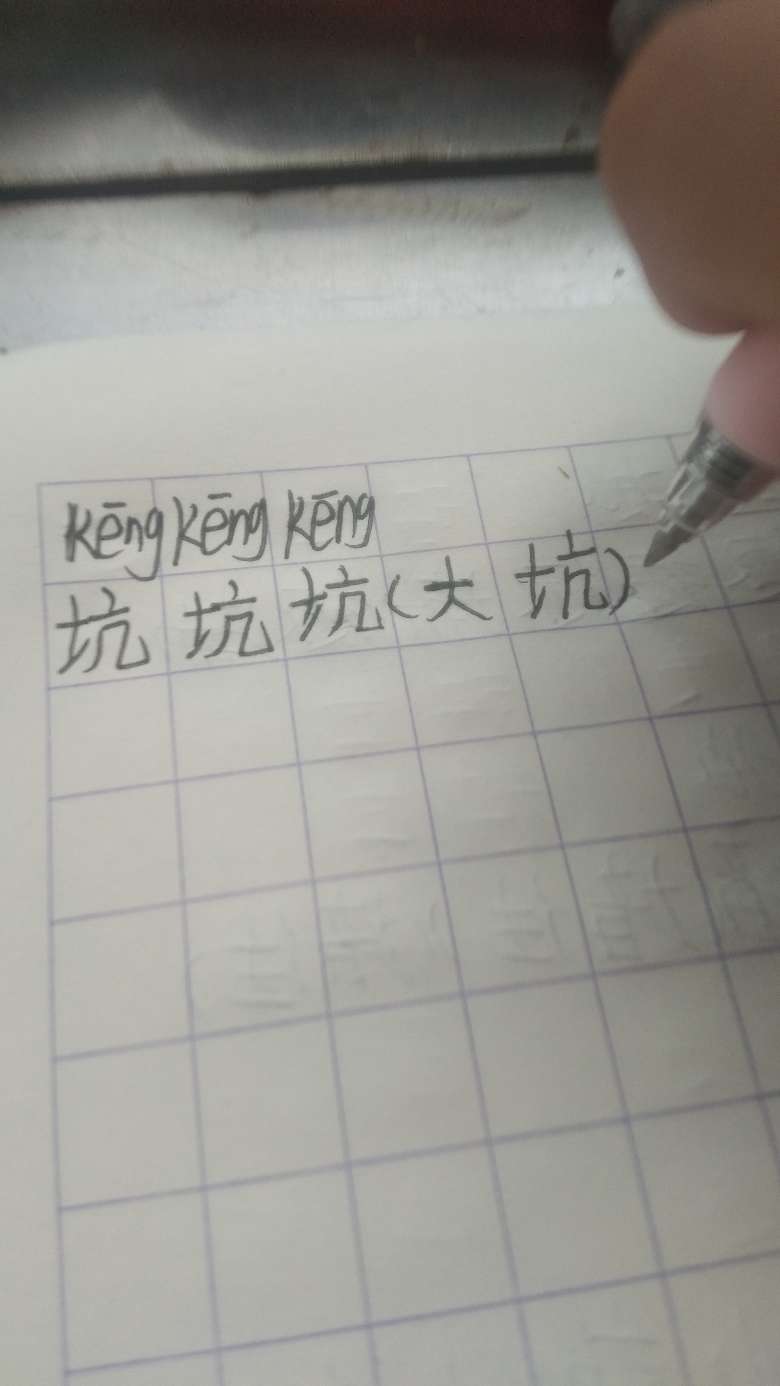 kēng kēng kēng
坑 坑 坑(大 坑)